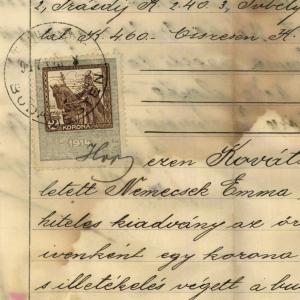 2, Trásdy K 240.3, Sobely
lat K 460.- Összesen K.
2 KORONA
1914
Hogy ezen Kováts
letett Nemecsek Emma
hiteles kiadvány az ör
ivenként egy korona
s illetékelés végett a bu